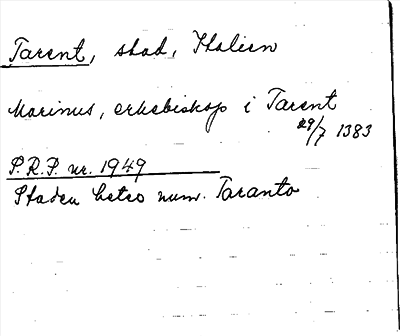 Tarent, stad, Italien
Marinus, erkebiskop i Tarent
29/7 1383
P.R.F. nr. 1949
Staden heter num. Taranto